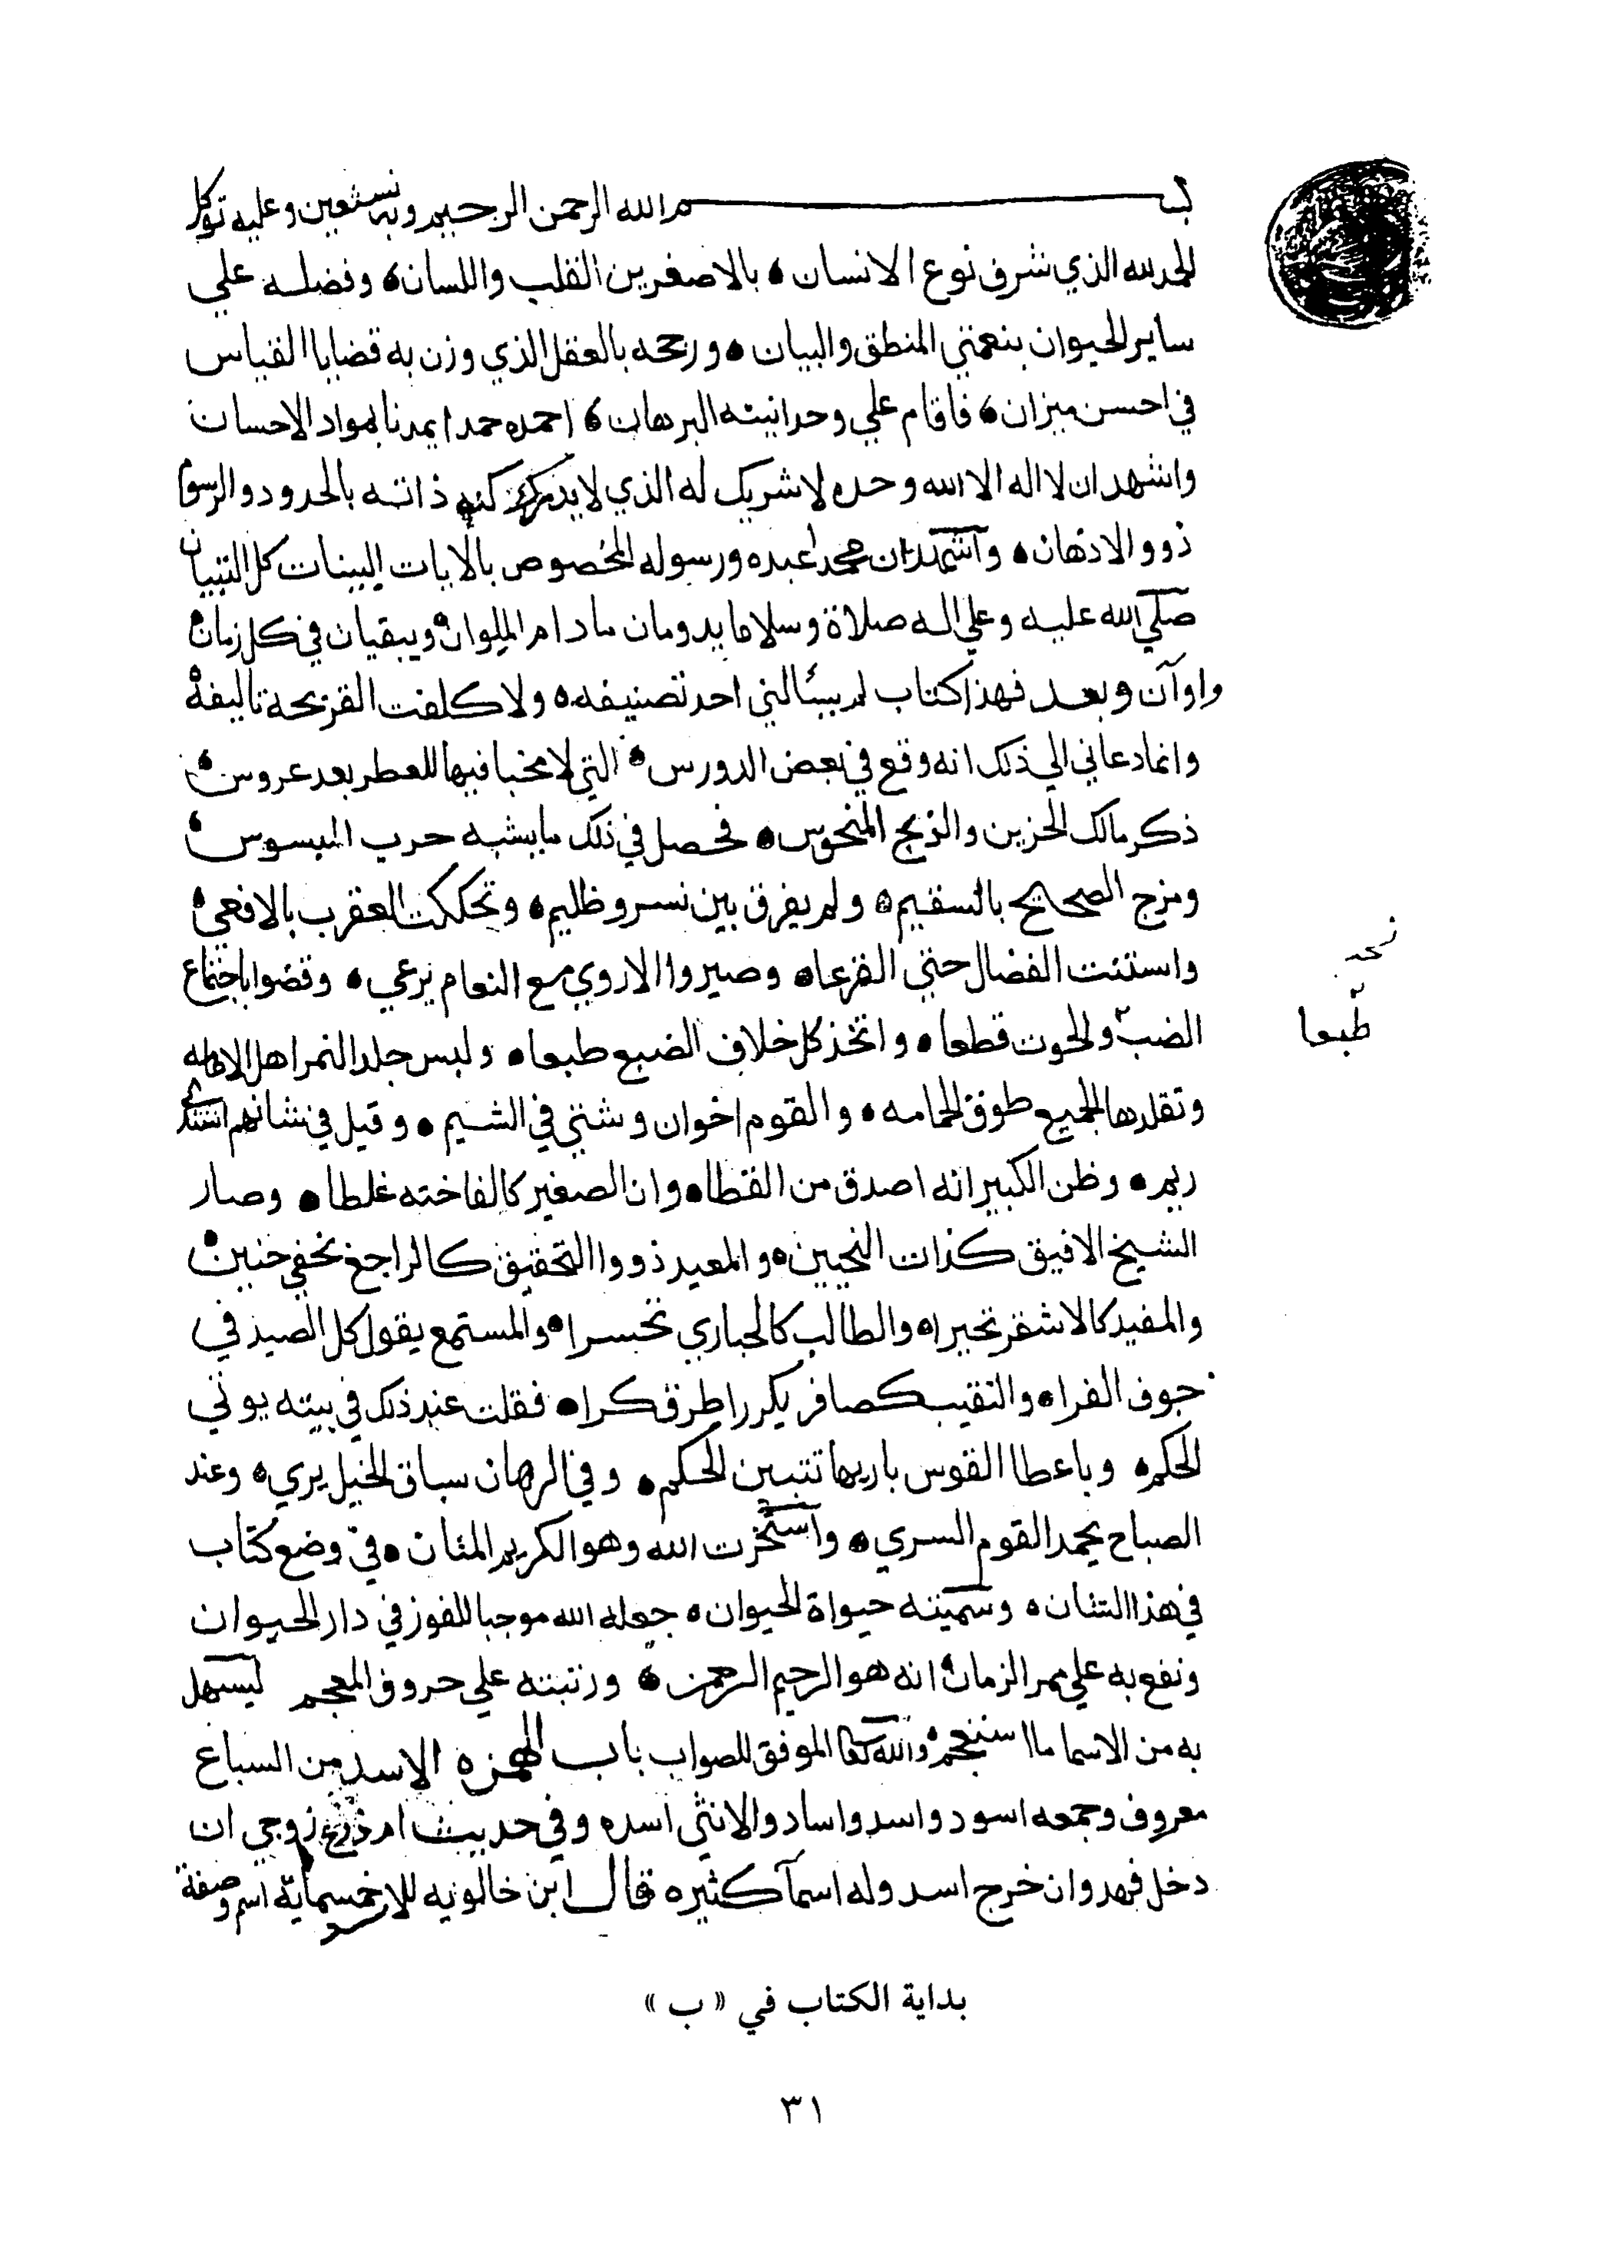 بسم الله الرحمن الرحيم وبه نستعين وعليه توكل
الحمد لله الذي شرف نوع الانسان ، بالاصغرين القلب واللسان ، وفضله علي
ساير الحيوان بنعمتي المنطق والبيان ، ورجحه بالعقل الذي وزن به قضايا القياس
في احسن ميزان ، فاقام علي وحدانيته البرهان ، احمده حمدا يمدنا بمواد الاحسان
واشهد ان لا اله الا الله وحده لا شريك له الذي لا يدرك كنه ذاته بالحدود والرسوم
ذوو الاذهان ، واشهد ان محمدا عبده ورسوله المخصوص بالايات البينات كل التبيان
صلي الله عليه وعلي اله صلاة وسلاما يدومان ما دام الملوان ويبقيان في كل زمان
واوآن وبعد فهذا كتاب لم يسالني احد تصنيفه ، ولا كلفت القريحة تاليفه
وانما دعاني الي ذلك انه وقع في بعض الدورس ، التي لا مخبا فيها للعطر بعد عروس ،
ذكر مالك الحزين والذيخ المنحوس ، فحصل في ذلك ما يشبه حرب البسوس ،
ومزج الصحيح بالسقيم ، ولم يفرق بين نسر وظليم ، وتحككت العقرب بالافعي ،
واستنت الفصال حتي القرعا ، وصيروا الاروي مع النعام يرعي ، وقضوا باجتماع
الضب والحوت قطعا ، واتخذ كل خلاف الضبع طبعا ، ولبس جلد النمر اهل الامامه
وتقلدها الجميع طوق الحمامه ، والقوم اخوان وشتي في الشيم ، وقيل في شانهم اشتدي
زيم ، وظن الكبير انه اصدق من القطا ، وان الصغير كالفاخته غلطا ، وصار
الشيخ الافيق كذات النحيين ، والمعيد ذووا التحقيق كالراجع بخفي حنين ،
والمفيد كالاشقر تحيرا ، والطالب كالحباري تحسرا ، والمستمع يقول كل الصيد في
جوف الفرا ، والنقيب كصافر يكرر اطرق كرا ، فقلت عند ذلك في بيته يوتي
الحكم ، وباعطا القوس باريها تتبين الحكم ، وفي الرهان سباق الخيل يري ، وعند
الصباح يحمد القوم السري ، واستخرت الله وهو الكريم المنان ، في وضع كتاب
في هذا الشان ، وسميته حيواة الحيوان ، جعله الله موجبا للفوز في دار الحيوان
ونفع به علي ممر الزمان ، انه هو الرحيم الرحمن ، ورتبته علي حروف المعجم ليسهل
به من الاسما ما استعجم ، والله الموفق للصواب باب الهمزه الاسد من السباع
معروف وجمعه اسود واسد واساد والانثي اسده وفي حديث ام زرع زوجي ان
دخل فهد وان خرج اسد وله اسمآ كثيره قال ابن خالويه للاسد خمسماية اسم وصفة
طبعا
بداية الكتاب في « ب »
٣١